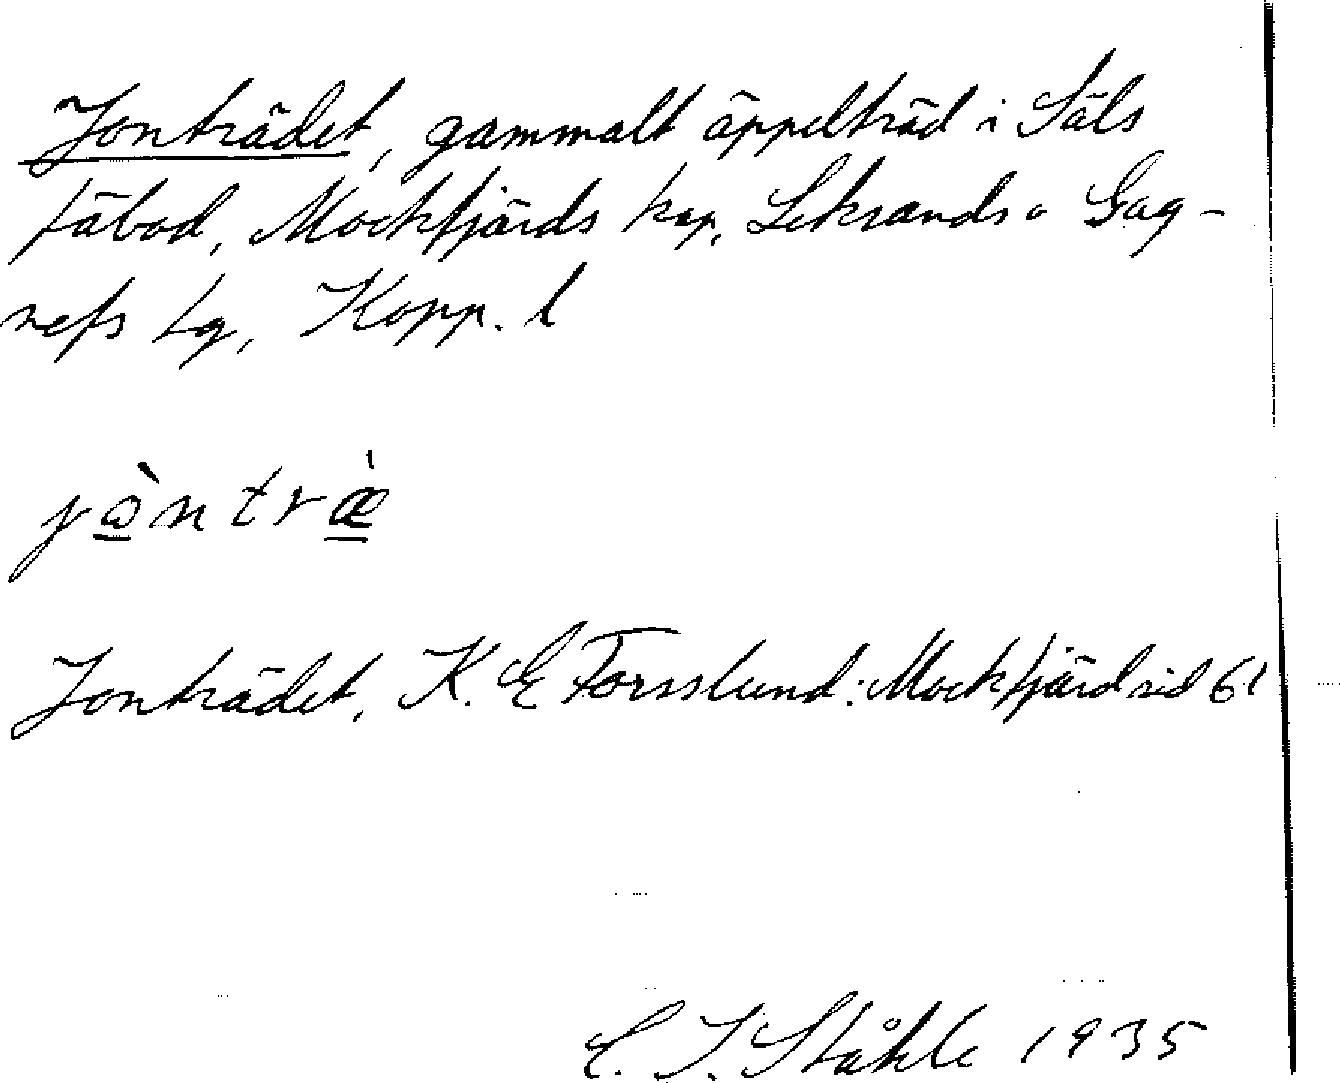 Jonträdet, gammalt äppelträd i Säls
fäbod, Mockfjärds kap, Leksands o Gag-
nefs tg, Kopp. l
jo̠̊̀ntræ̠̀
Jonträdet, K. E Forsslund: Mockfjärd sid 61
C. I. Ståhle 1935